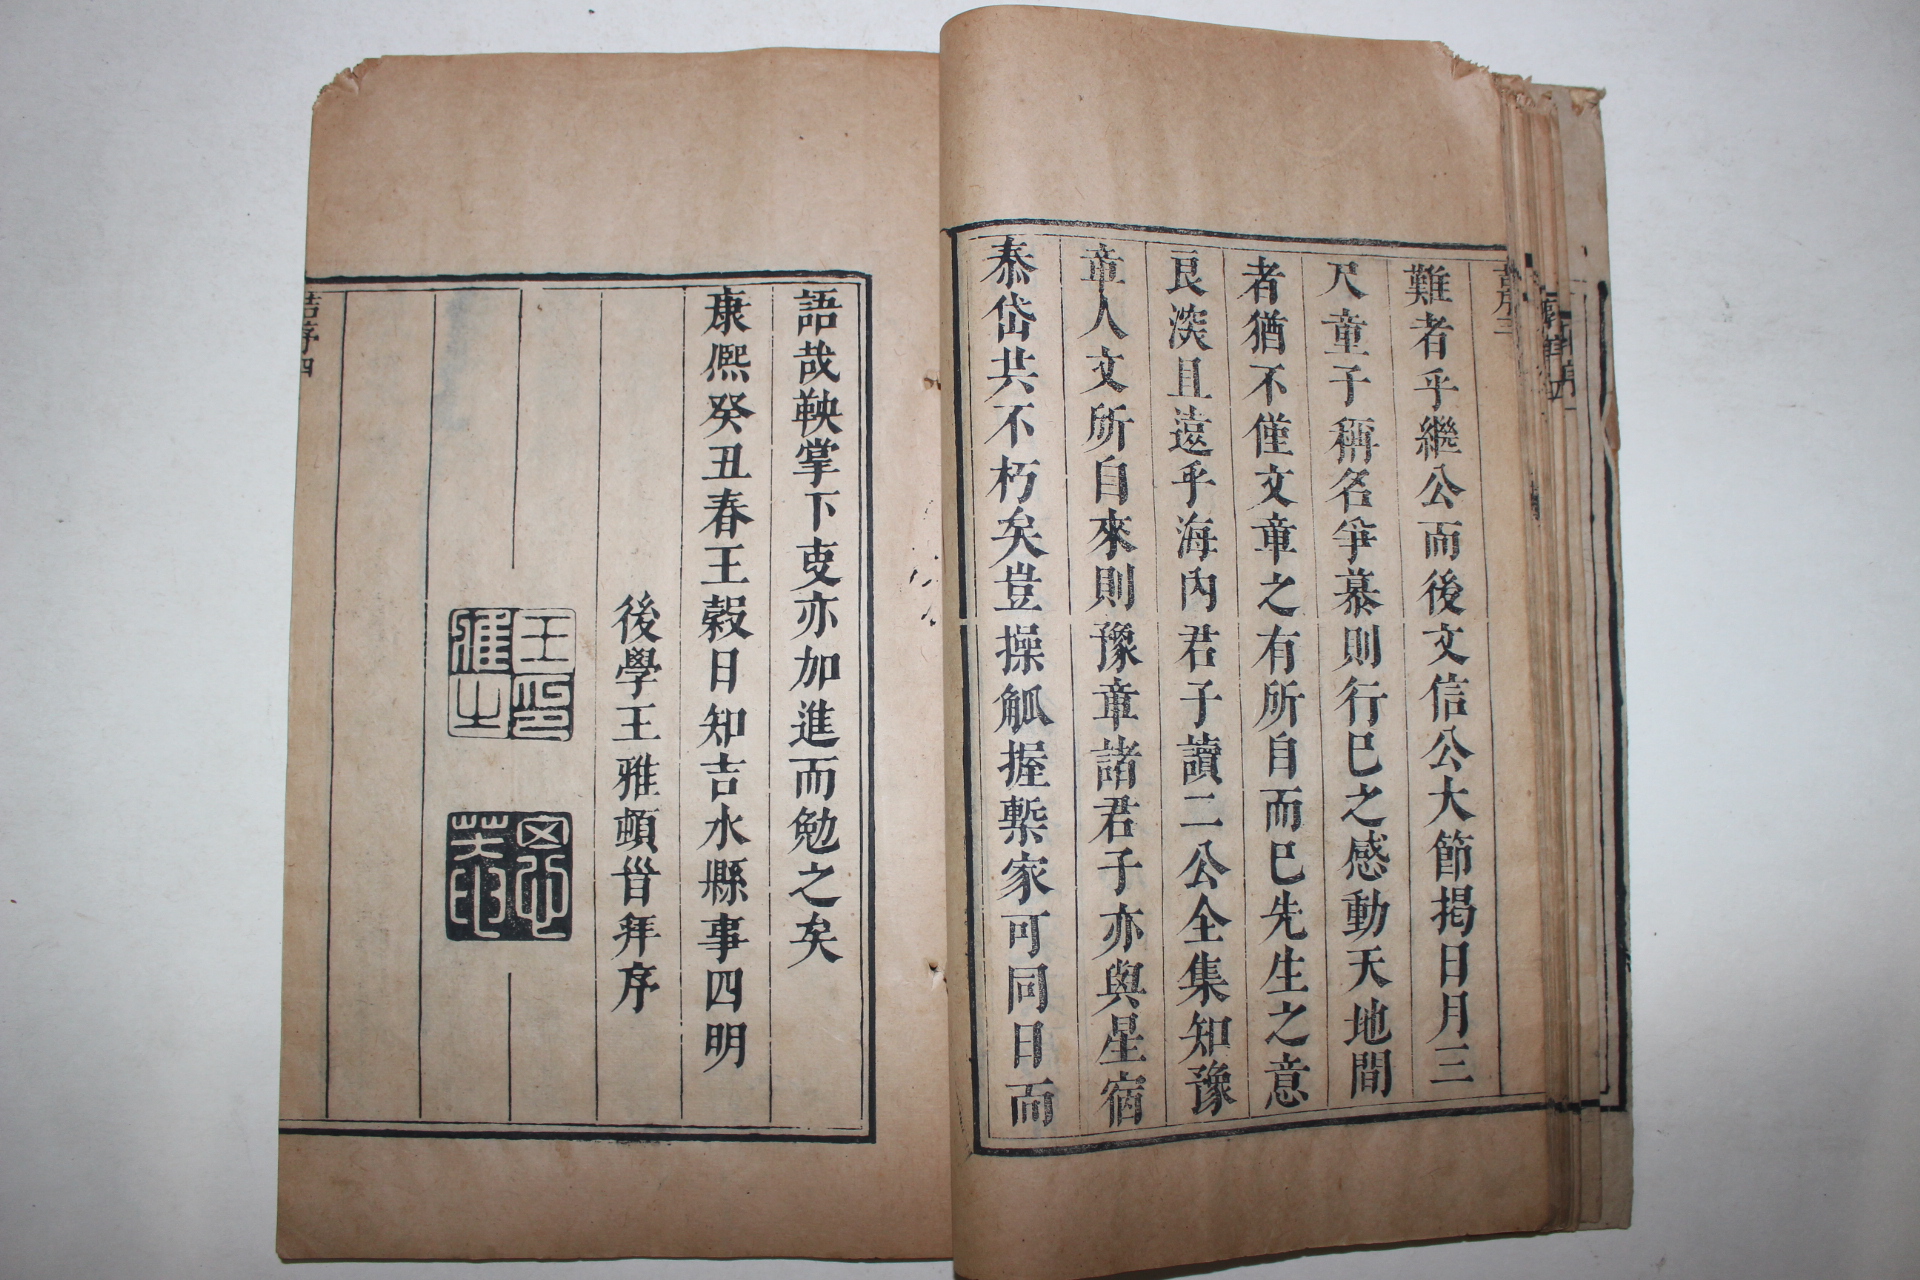 難者乎繼公而後文信公大節揭日月三
尺童子稱名爭慕則行巳之感動天地間
者猶不僅文章之有所自而巳先生之意
良深且遠乎海內君子讀二公全集知豫
章人文所自來則豫章諸君子亦與星宿
泰岱共不朽矣豈操觚握槧家可同日而
語哉鞅掌下吏亦加進而勉之矣
康熙癸丑春王穀日知吉水縣事四明
後學王雅頓首拜序
王印
雅